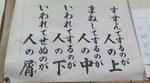 すすんでするのが
人の上
まねしてするのが
人の中
いわれてするのが
人の下
いわれてもせぬのが
人の屑